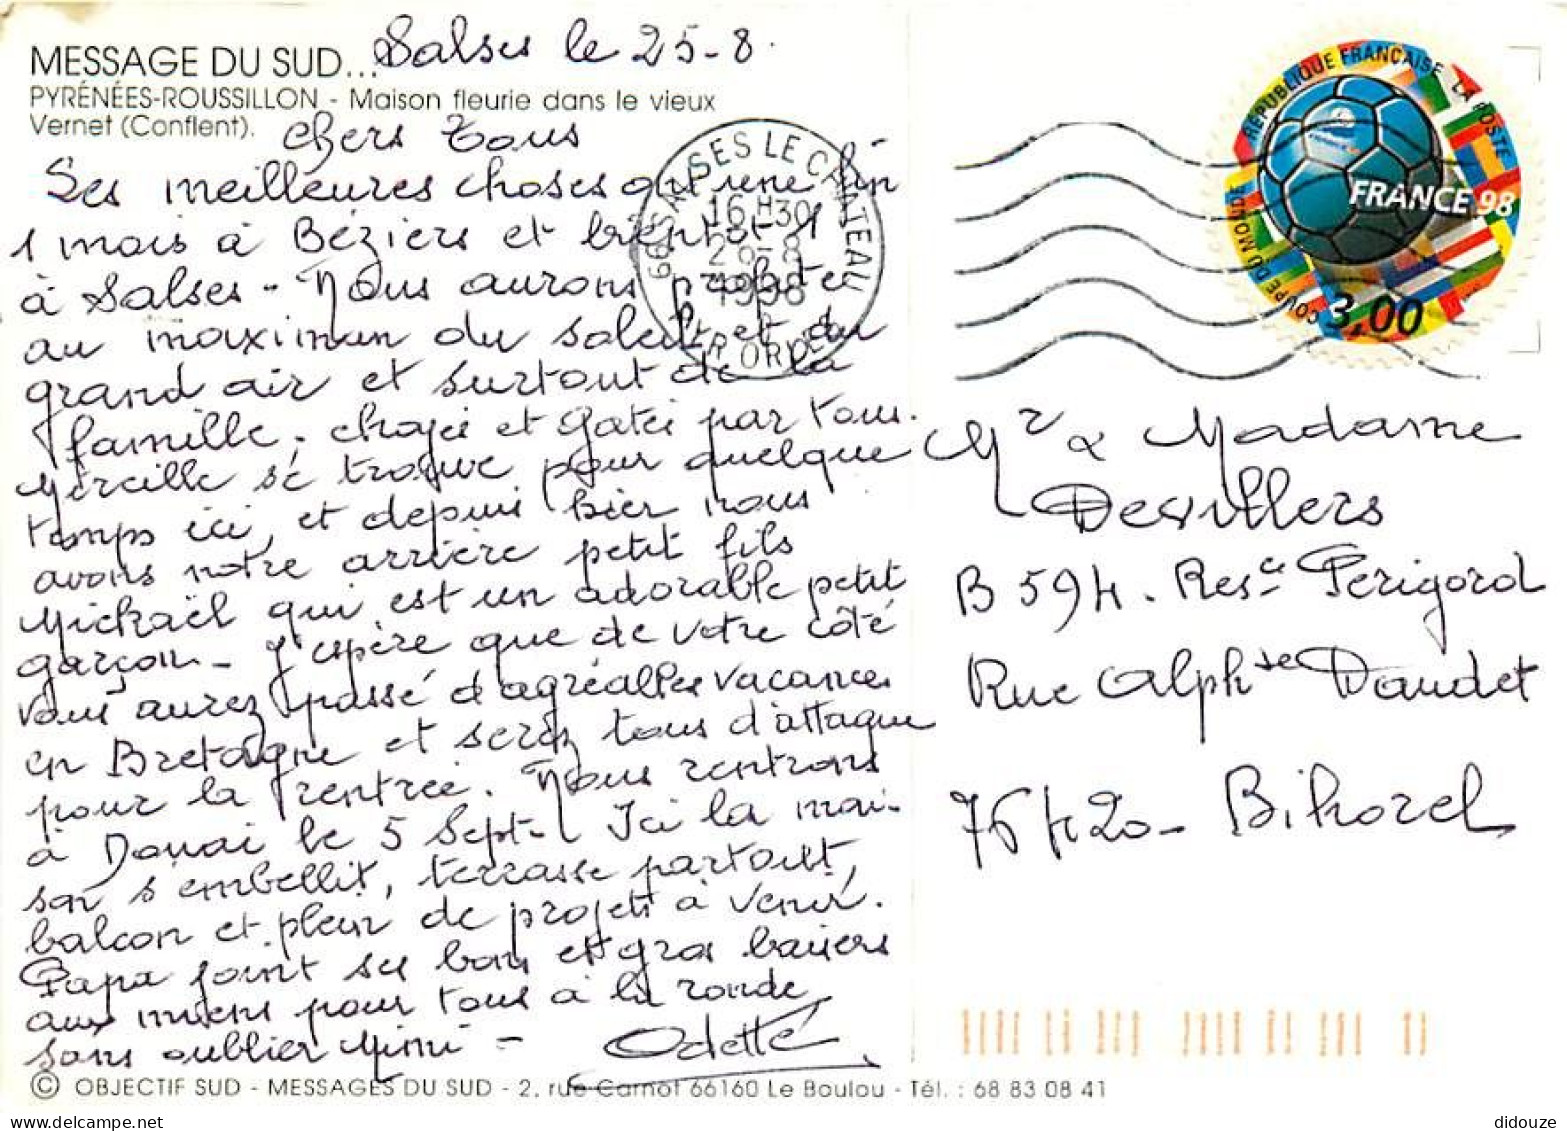 MESSAGE DU SUD... Salses le 25-8.
PYRÉNÉES-ROUSSILLON - Maison fleurie dans le vieux
Vernet (Conflent).
Chers Tous
Les meilleures choses ont une fin
1 mois à Béziers et bientôt 1
à Salses - Nous aurons profité
au maximum du soleil et du
grand air et surtout de la
famille, choyés et gatés par tous.
Mireille se trouve pour quelque
temps ici, et depuis hier nous
avons notre arrière petit fils
Mickaël qui est un adorable petit
garçon - J'espère que de votre côté
vous aurez passé d'agréables vacances
en Bretagne et serez tous d'attaque
pour la rentrée. Nous rentrons
à Douai le 5 Sept - Ici la mai-
son s'embellit, terrasse partout,
balcon et plein de projets à venir.
Papa joint ses bons et gros baisers
aux miens pour tous à la ronde
sans oublier Mimi -
Odette
© OBJECTIF SUD - MESSAGES DU SUD - 2, rue Carnot 66160 Le Boulou - Tél. : 68 83 08 41
66 SALSES LE CHATEAU
16 H 30
28-8
1998
PYR ORIENTALES
RÉPUBLIQUE FRANÇAISE LA POSTE
COUPE DU MONDE
FRANCE 98
3,00
Mr & Madame
Devillers
B 594 - Resce Perigord
Rue Alphse Daudet
76420 - Bihorel
didouze